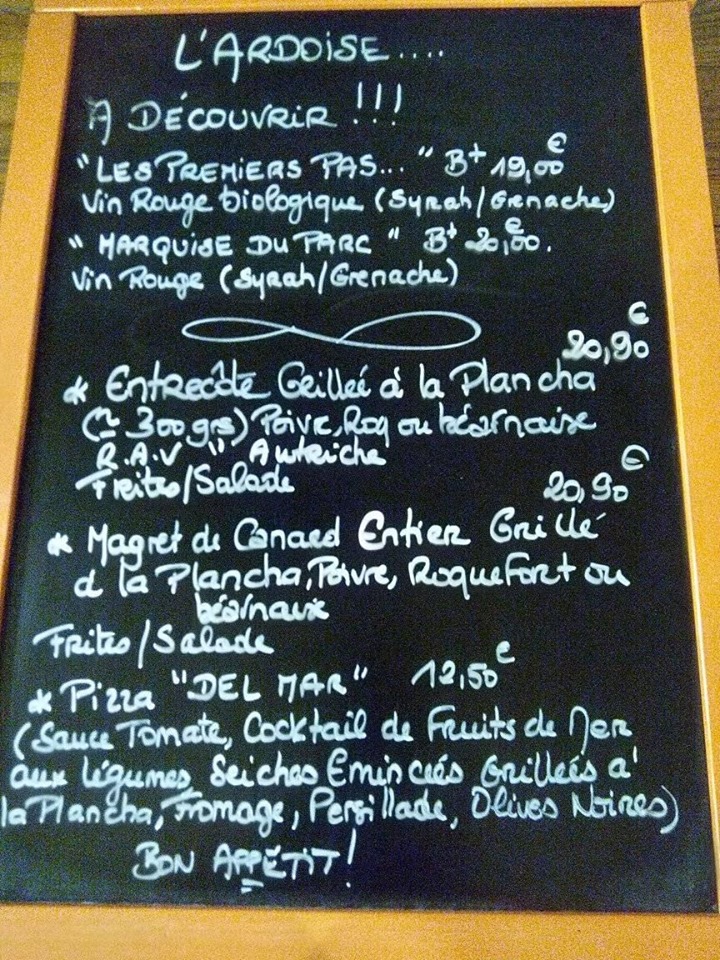 L'ARDOISE....
A DÉCOUVRIR !!!
"LES PREMIERS PAS..." Bt 19,00€
Vin Rouge biologique (Syrah/Grenache)
"MARQUISE DU PARC" Bt 20,00€.
Vin Rouge (Syrah/Grenache)
20,90€
* Entrecôte Grilleé à la Plancha
(≃ 300grs) Poivre, Roq ou béarnaise
R.A.V " Autriche
Frites/Salade 20,90€
* Magret de Canard Entier Grillé
à la Plancha, Poivre, Roquefort ou
béarnaise
Frites/Salade
* Pizza "DEL MAR" 12,50€
(Sauce Tomate, Cocktail de Fruits de Mer
aux légumes, Seiches Emincéés Grilleés à
la Plancha, Fromage, Persillade, Olives Noires)
BON APPÉTIT!